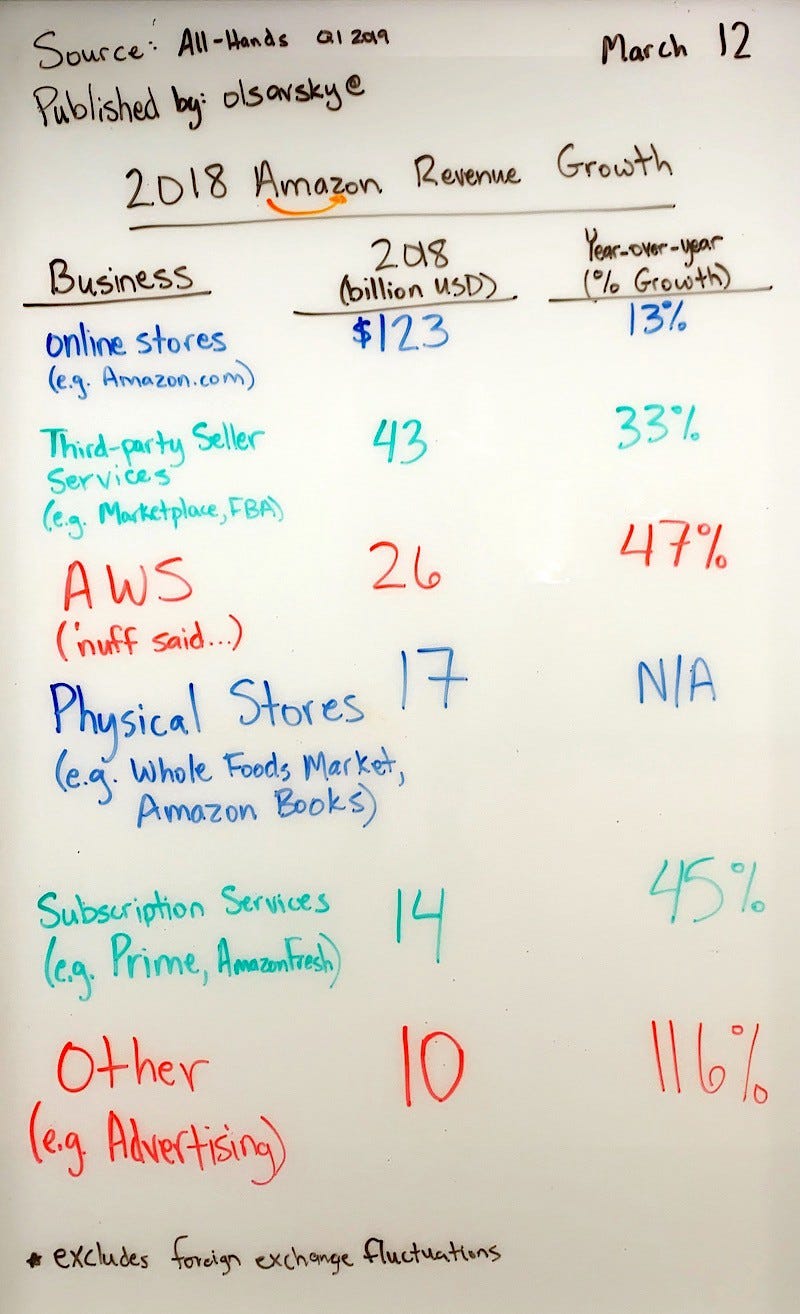 Source: All-Hands Q1 2019
March 12
Published by: olsavsky@
2018 Amazon Revenue Growth
Business 2018 (billion USD) Year-over-year (% Growth)
online stores $123 13%
(e.g. Amazon.com)
Third-party Seller 43 33%
Services
(e.g. Marketplace, FBA)
AWS 26 47%
('nuff said...)
Physical Stores 17 N/A
(e.g. Whole Foods Market,
Amazon Books)
Subscription Services 14 45%
(e.g. Prime, AmazonFresh)
Other 10 116%
(e.g. Advertising)
* excludes foreign exchange fluctuations